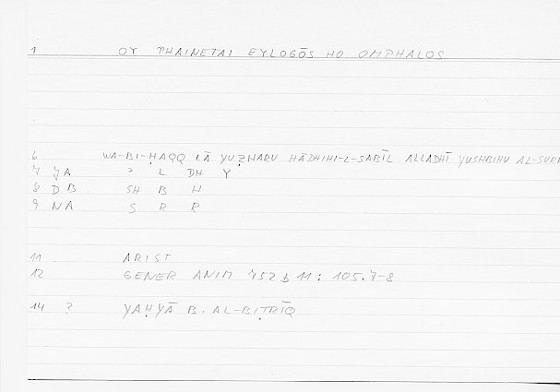 1 OY PHAINETAI EYLOGŌS HO OMPHALOS
6 WA-BI-ḤAQQ LĀ YUẒHARU HĀDHIHI-L-SABĪL ALLADHĪ YUSHBIHU AL-SURR
7 YA ʾ L DH Y
8 DB SH B H
9 NA S R R
11 ARIST
12 GENER ANIM 752 b 11 : 105.7-8
14 ? YAḤYĀ B. AL-BIṬRĪQ